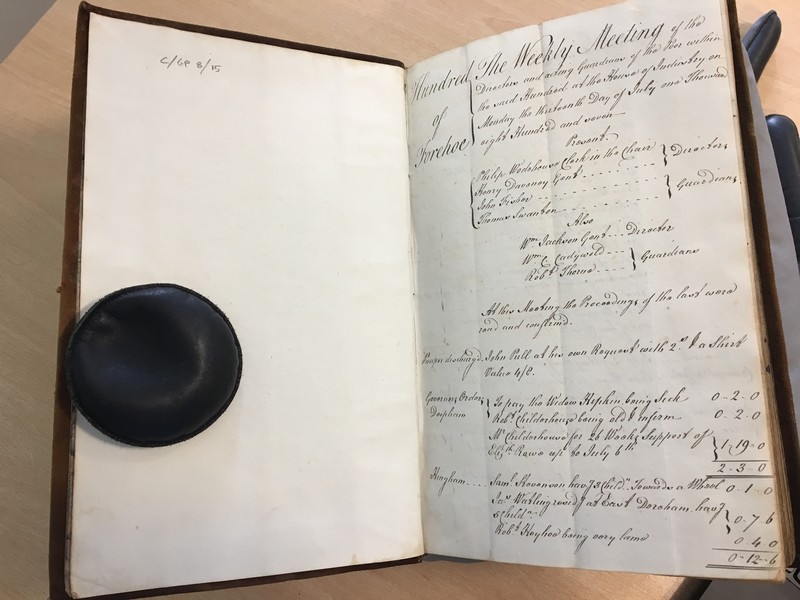 C/GP 8/15
Hundred
of
Forehoe
The Weekly Meeting of the
Directors and acting Guardians of the Poor within
the said Hundred at the House of Industry on
Monday the thirteenth Day of July one Thousand
eight Hundred and seven
Present
Philip Wodehouse Clerk in the Chair } Directors
Henry Daveney Gent
John Fisher } Guardians
Thomas Swanton
Also
Wm Jackson Gent Director
Wm C. } Guardians
Robt Thorne
At this Meeting the Proceedings of the last were
read and confirmed.
Pauper discharged. John Pull at his own Request with 2s & a Shirt
Value 4/2.
Governors Orders To pay the Widow Hipkin being Sick 0-2-0
Deopham Robt Childerhouse being old & infirm 0-2-0
Mr Childerhouse for 26 Weeks Support of
Elizth Rawo up to July 6th } 1-19-0
2-3-0
Hingham Saml Stevenson havg 3 Childn Towards a Wheel 0-1-0
Jas Watling resid at East Dereham havg
5 Childn } 0-7-6
Robt Hoyhoe being very lame 0-4-0
0-12-6